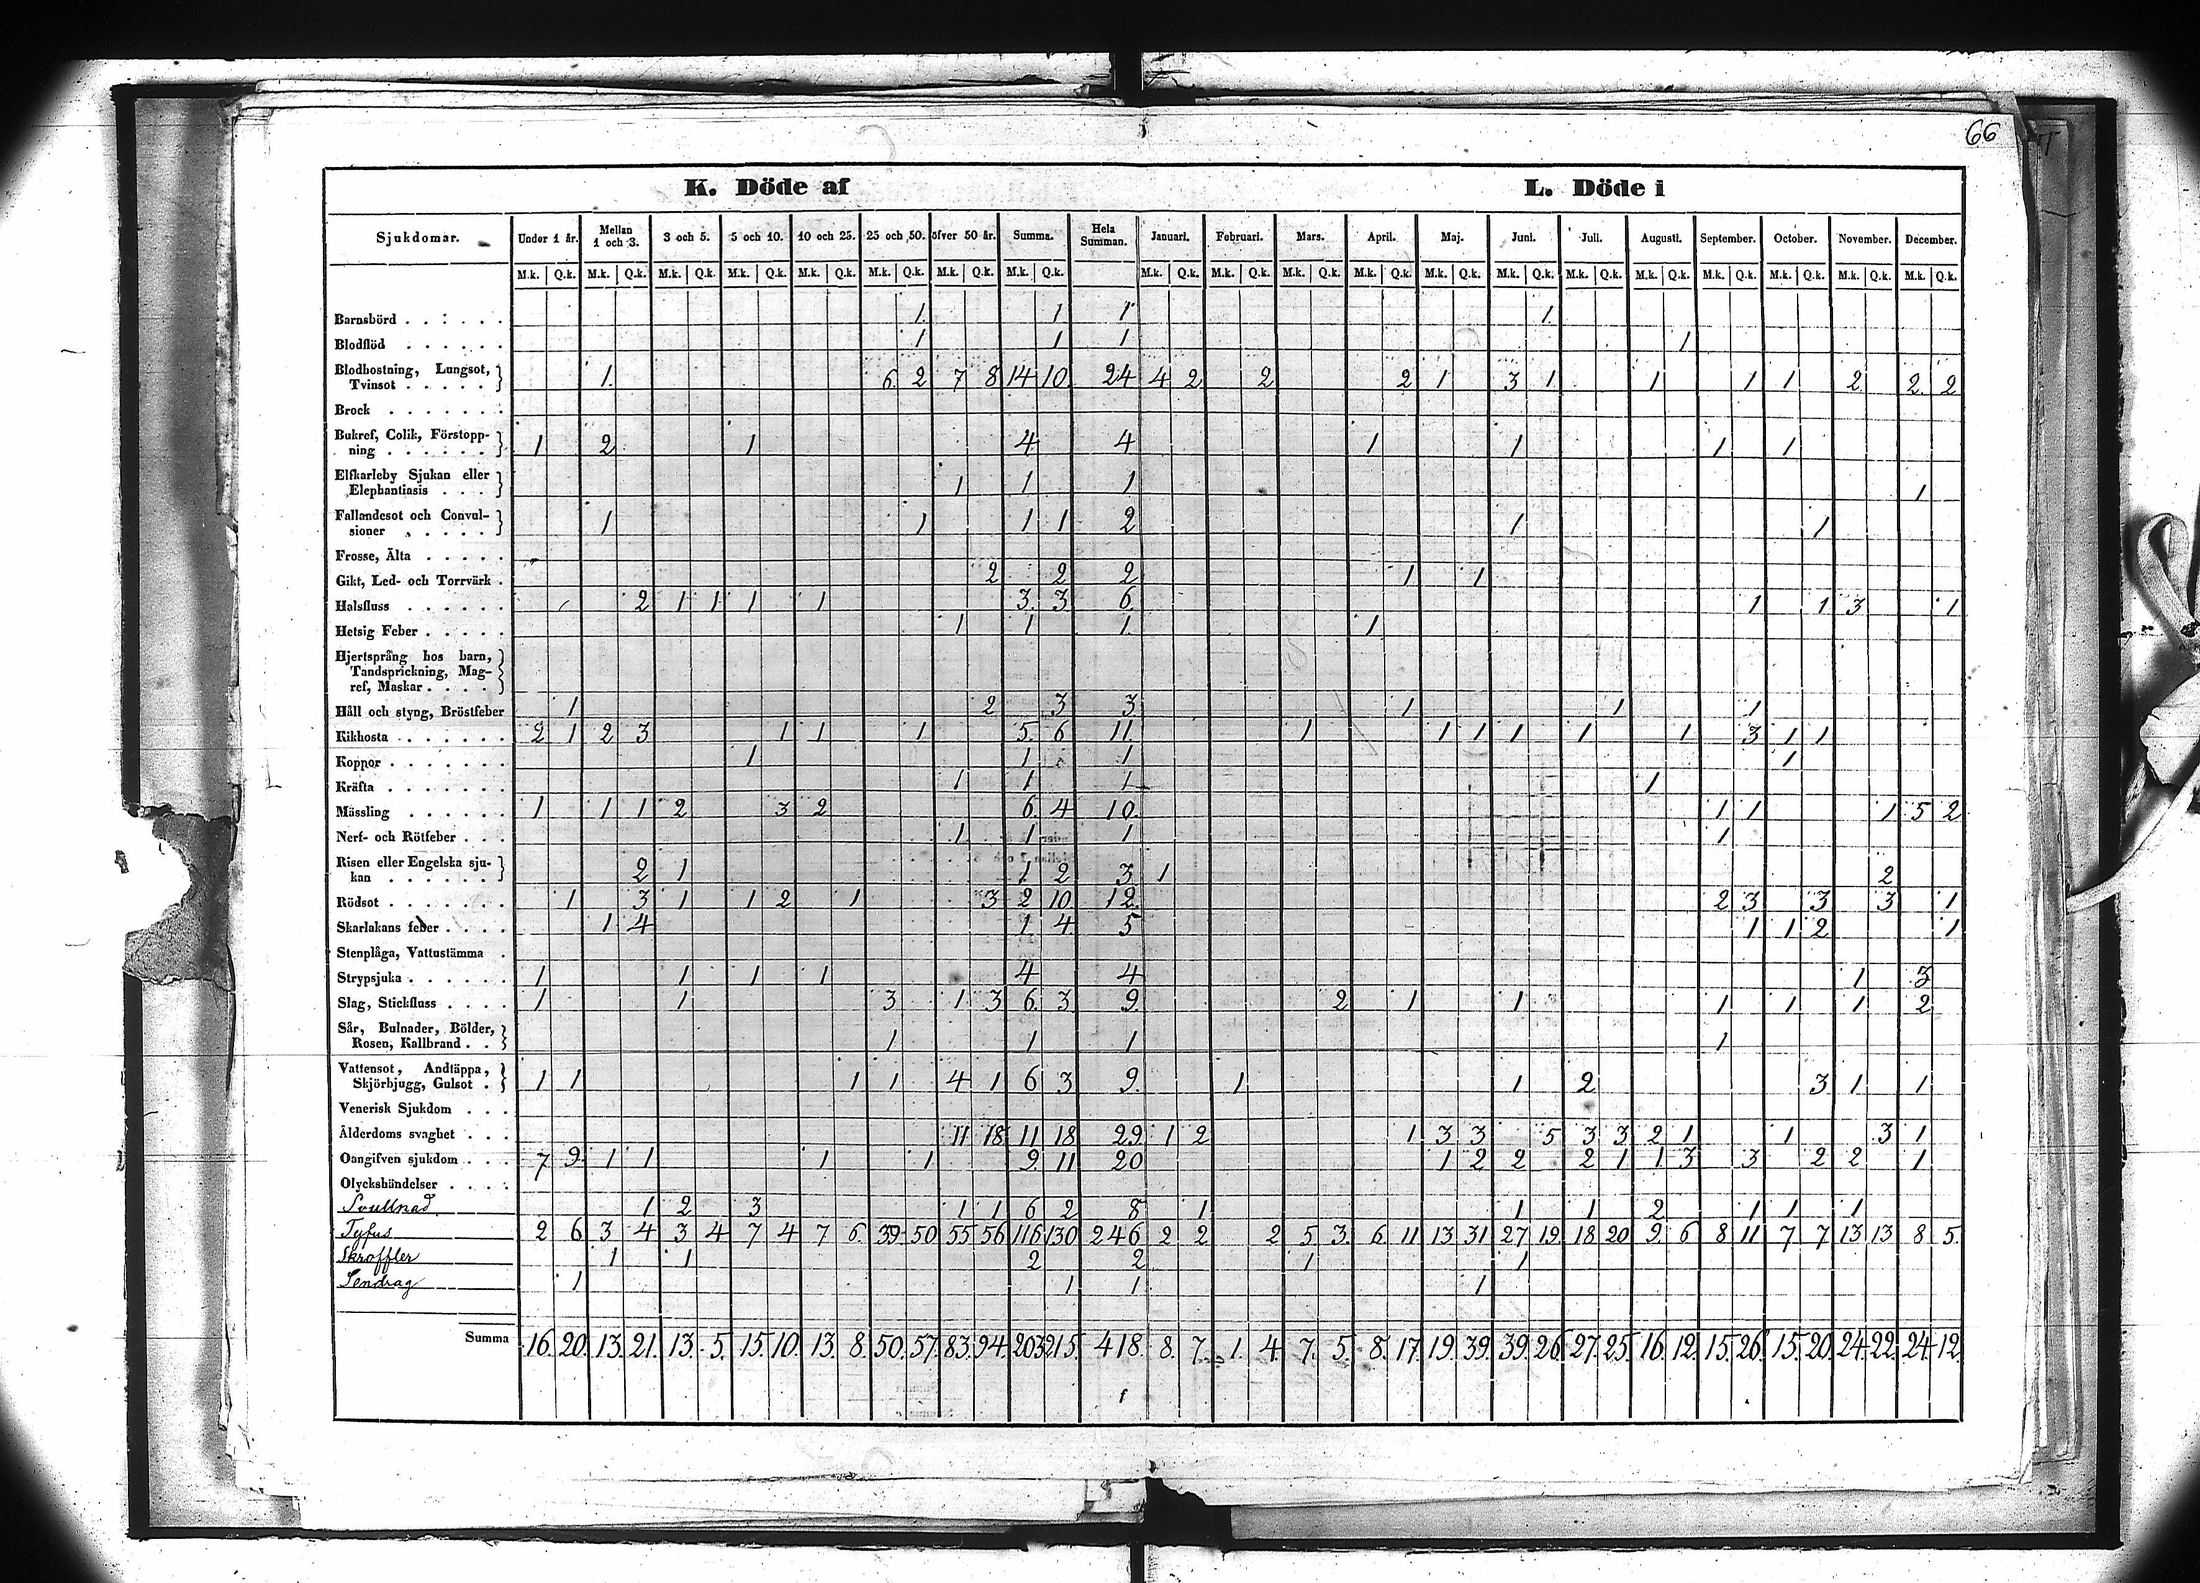 66
K. Döde af L. Döde i
Sjukdomar. Under 1 år. Mellan 1 och 3. 3 och 5. 5 och 10. 10 och 25. 25 och 50. öfver 50 år. Summa. Hela Summan. Januari. Februari. Mars. April. Maj. Juni. Juli. Augusti. September. October. November. December.
M.k. Q.k. M.k. Q.k. M.k. Q.k. M.k. Q.k. M.k. Q.k. M.k. Q.k. M.k. Q.k. M.k. Q.k. M.k. Q.k. M.k. Q.k. M.k. Q.k. M.k. Q.k. M.k. Q.k. M.k. Q.k. M.k. Q.k. M.k. Q.k. M.k. Q.k. M.k. Q.k. M.k. Q.k. M.k. Q.k.
Barnsbörd . . . . . . 1 1 1 1
Blodflöd . . . . . . 1 1 1 1
Blodhostning, Lungsot,
Tvinsot . . . . . 1 6 2 7 8 14 10 24 4 2 2 2 1 3 1 1 1 1 2 2 2
Brock . . . . . . .
Bukref, Colik, Förstopp-
ning . . . . . . 1 2 1 4 4 1 1 1 1
Elfkarleby Sjukan eller
Elephantiasis . . . 1 1 1 1
Fallandesot och Convul-
sioner . . . . . 1 1 1 1 2 1 1
Frosse, Älta . . . . .
Gikt, Led- och Torrvärk . 2 2 2 1 1
Halsfluss . . . . . . 2 1 1 1 1 3 3 6 1 1 3 1
Hetsig Feber . . . . . 1 1 1 1
Hjertsprång hos barn,
Tandsprickning, Mag-
ref, Maskar . . . .
Håll och styng, Bröstfeber 1 2 3 3 1 1 1
Kikhosta . . . . . . 2 1 2 3 1 1 1 5 6 11 1 1 1 1 1 1 3 1 1
Koppor . . . . . . . 1 1 1 1
Kräfta . . . . . . . 1 1 1 1
Mässling . . . . . . 1 1 1 2 3 2 6 4 10 1 1 1 5 2
Nerf- och Rötfeber . . . 1 1 1 1
Risen eller Engelska sju-
kan . . . . . . 2 1 1 2 3 1 2
Rödsot . . . . . . . 1 3 1 1 2 1 3 2 10 12 2 3 3 3 1
Skarlakans feber . . . . 1 4 1 4 5 1 1 2 1
Stenplåga, Vattustämma .
Strypsjuka . . . . . . 1 1 1 1 4 4 1 3
Slag, Stickfluss . . . . 1 1 3 1 3 6 3 9 2 1 1 1 1 1 2
Sår, Bulnader, Bölder,
Rosen, Kallbrand . . 1 1 1 1
Vattensot, Andtäppa,
Skjörbjugg, Gulsot . 1 1 1 1 4 1 6 3 9 1 1 2 3 1 1
Venerisk Sjukdom . . .
Ålderdoms svaghet . . . 11 18 11 18 29 1 2 1 3 3 5 3 3 2 1 1 3 1
Oangifven sjukdom . . . 7 9 1 1 1 1 9 11 20 1 2 2 2 1 1 3 3 2 2 1
Olyckshändelser . . . .
Svullnad 1 2 3 1 1 6 2 8 1 1 1 2 1 1 1
Tyfus 2 6 3 4 3 4 7 4 7 6 39 50 55 56 116 130 246 2 2 2 5 3 6 11 13 31 27 19 18 20 9 6 8 11 7 7 13 13 8 5
Skroffler 1 1 2 2 1 1
Sendrag 1 1 1 1
Summa 16. 20. 13. 21. 13. 5. 15. 10. 13. 8. 50. 57. 83. 94. 203 215. 418. 8. 7. 1. 4. 7. 5. 8. 17. 19. 39. 39. 26. 27. 25. 16. 12. 15. 26. 15. 20. 24. 22. 24. 12.